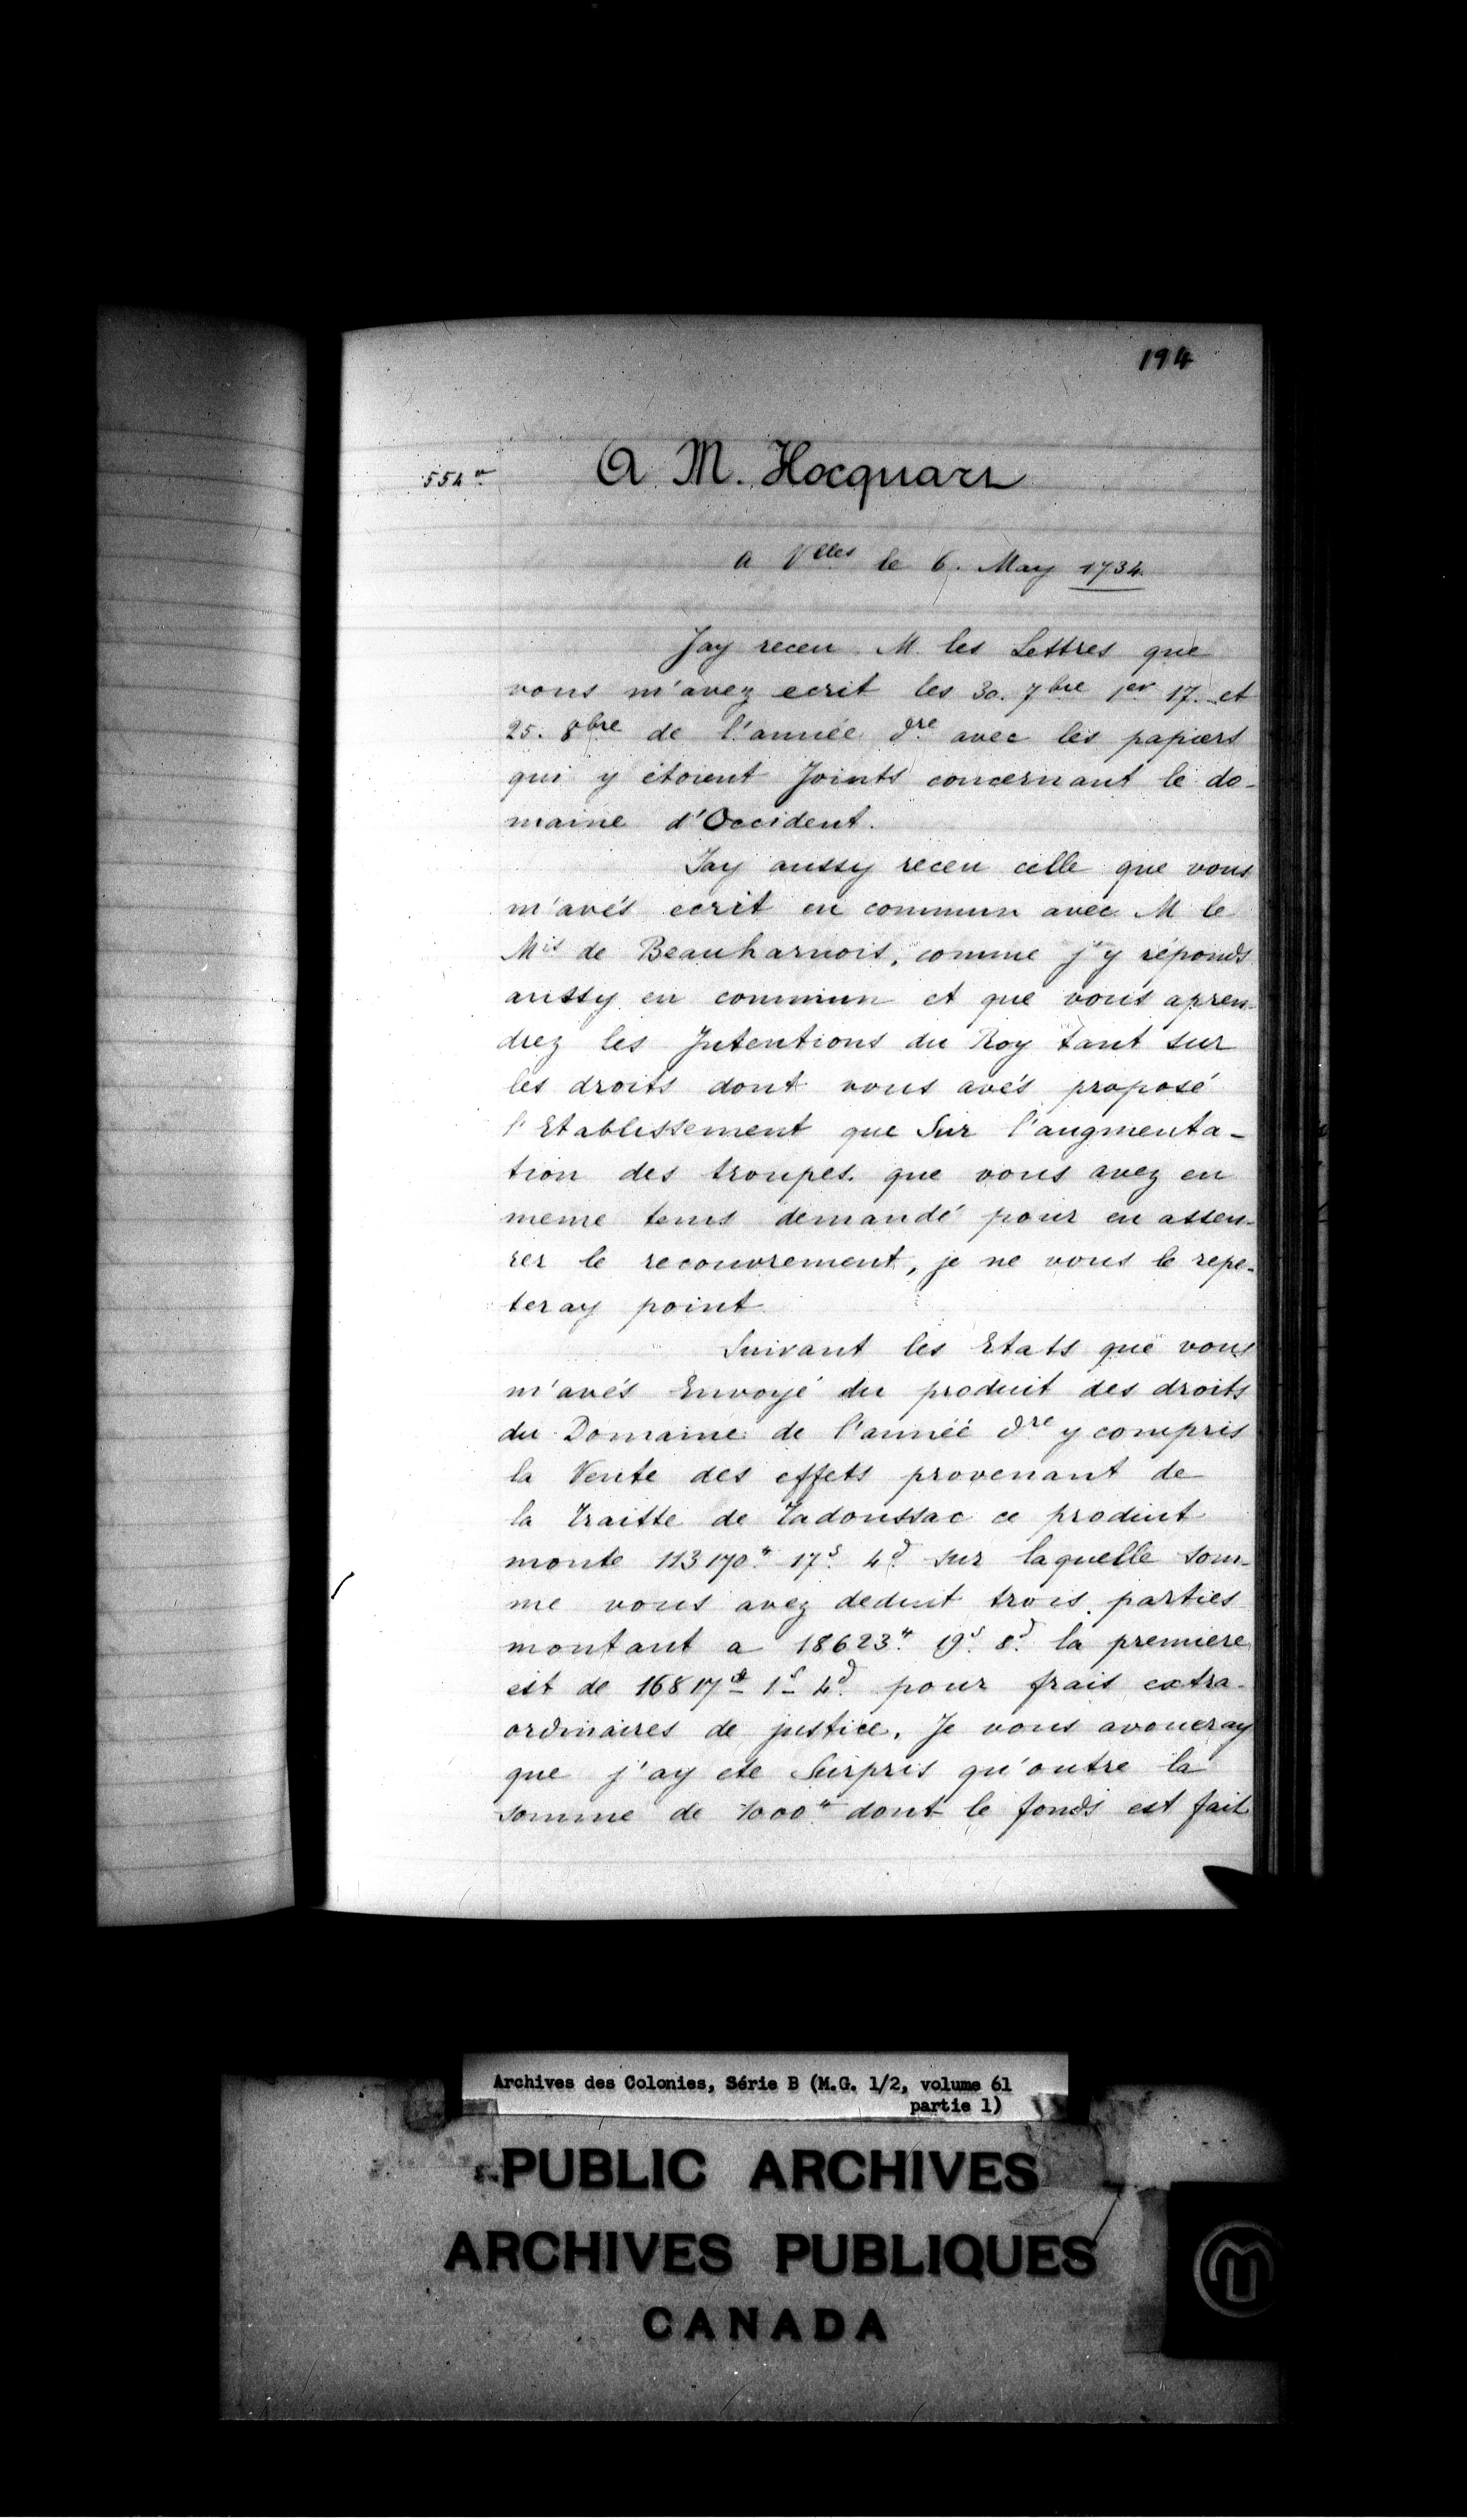 194
554 v.
A M. Hocquart
a V.lles le 6. May 1734.
Jay receu M les Lettres que
vous m'avez ecrit les 30. 7bre 1er 17. et
25. 8bre de l'année dre avec les papiers
qui y étoient Joints concernant le do-
maine d'Occident.
Jay aussy receu celle que vous
m'avés ecrit en commun avec M le
Mis de Beauharnois, comme j'y réponds
aussy en commun et que vous apren-
drez les Intentions du Roy tant sur
les droits dont vous avés proposé
l'Etablissement que Sur l'augmenta-
tion des troupes que vous avez en
meme tems demandé pour en asseu-
rer le recouvrement, je ne vous le repe-
teray point
Suivant les Etats que vous
m'avés Envoyé du produit des droits
du Domaine de l'année dre y compris
la Vente des effets provenant de
la Traitte de Tadoussac ce produit
monte 113170.# 17.s 4.d sur laquelle som-
me vous avez deduit trois parties
montant a 18623.# 19.s 8.d la premiere
est de 16817# 1s 4.d pour frais extra-
ordinaires de justice. Je vous avoueray
que j'ay ete Surpris qu'outre la
somme de 1000# dont le fonds est fait
Archives des Colonies, Série B (M.G. 1/2, volume 61
partie 1)
PUBLIC ARCHIVES
ARCHIVES PUBLIQUES
CANADA